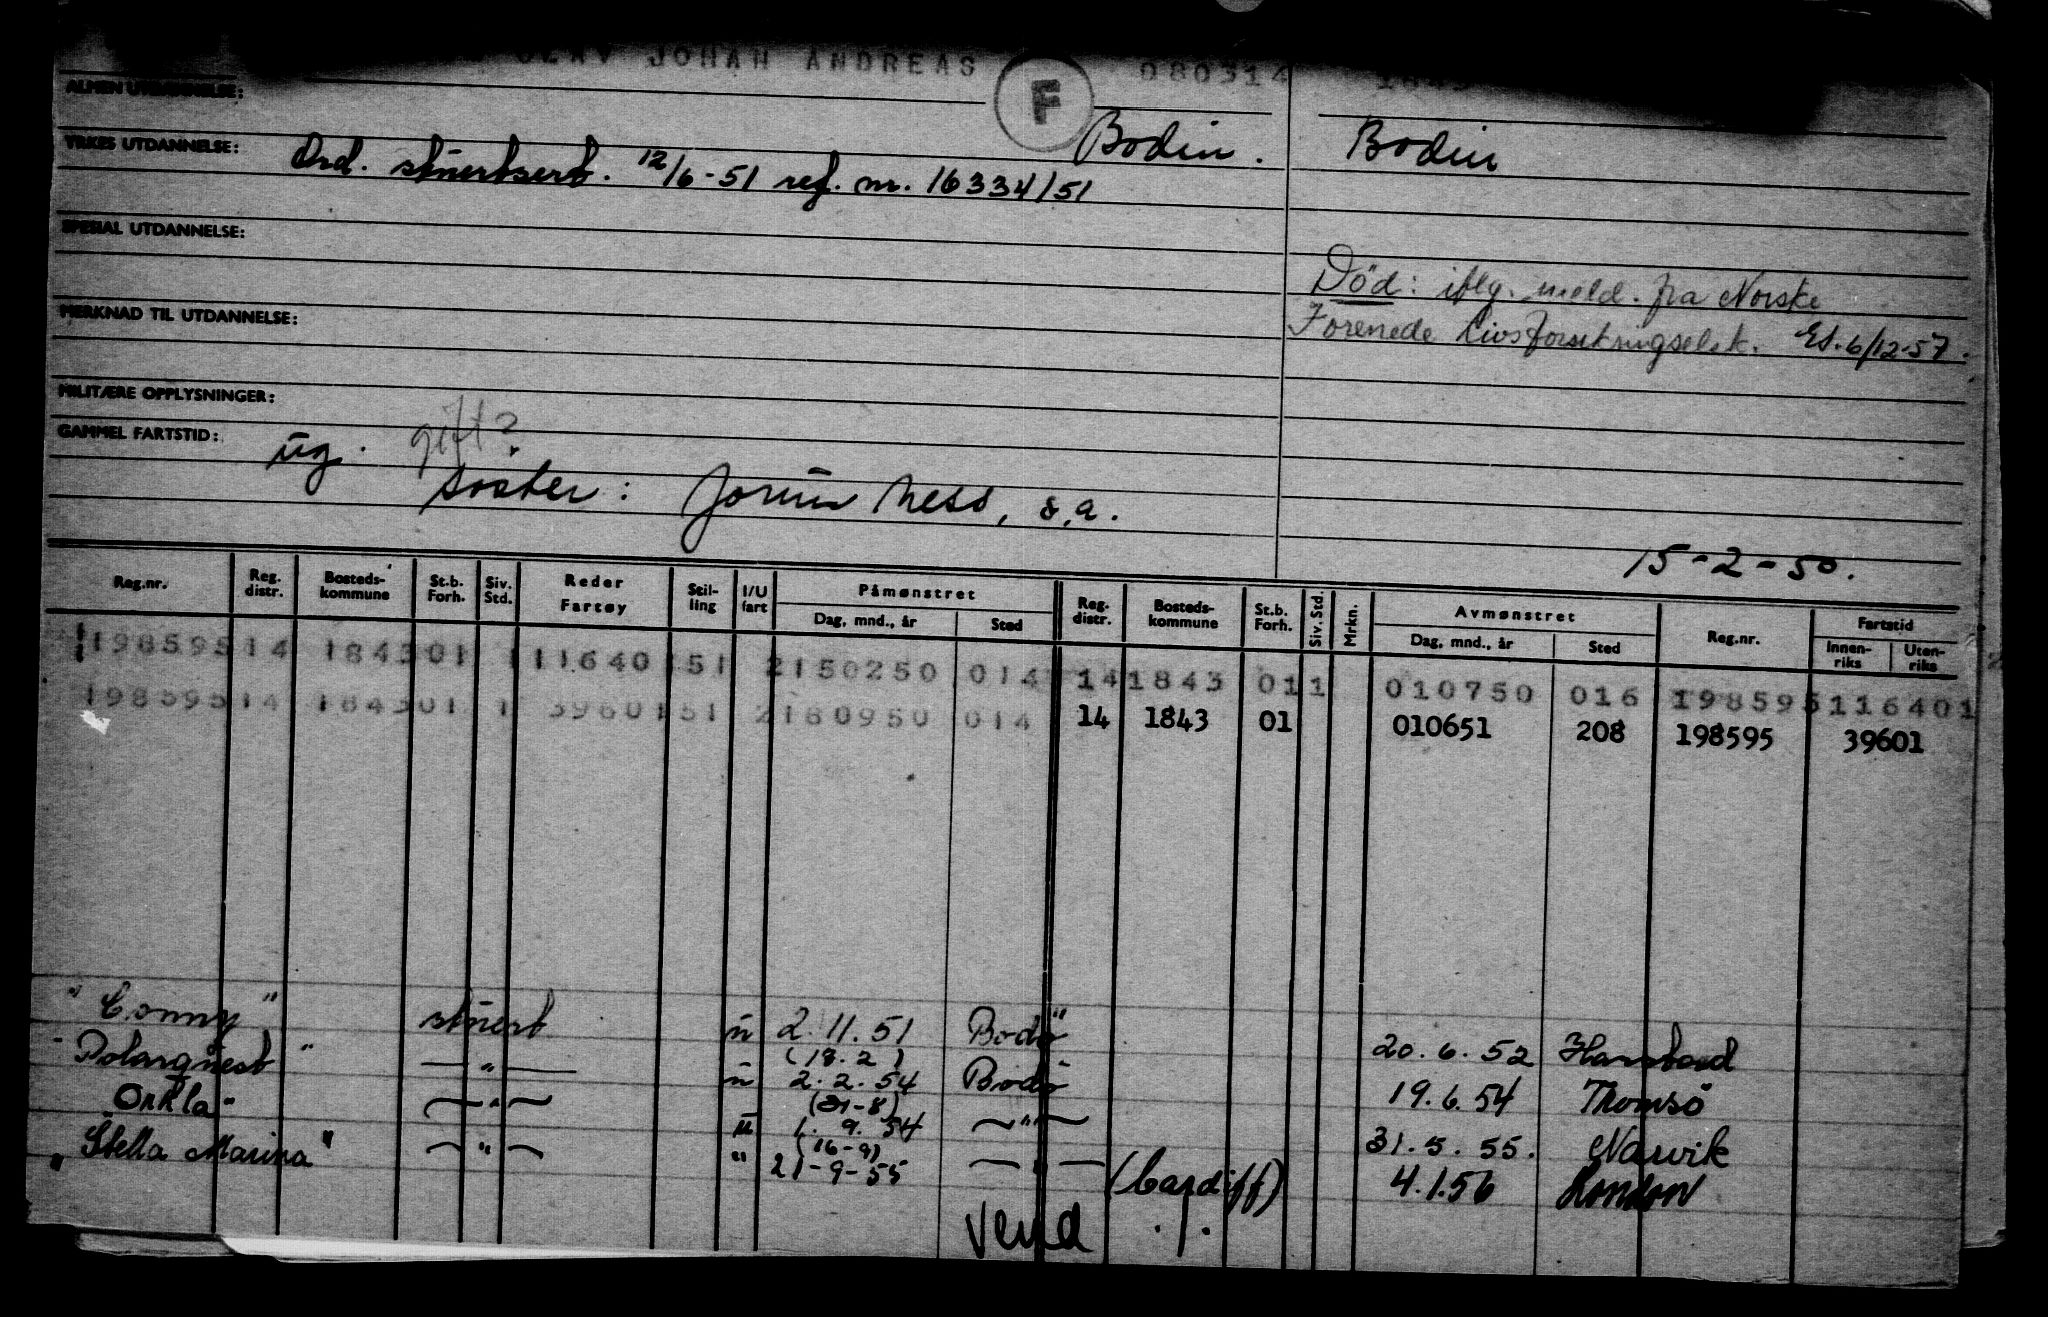 OLAV JOHAN ANDREAS F 080314
ALMEN UTDANNELSE:
Bodin. Bodin
YRKES UTDANNELSE: Ord. stuertsert. 12/6-51 ref. nr. 16334/51
SPESIAL UTDANNELSE:
Död: iflg. meld. fra Norske
MERKNAD TIL UTDANNELSE: Forenede Livsforsikringselsk. 6/12-57.
MILITÆRE OPPLYSNINGER:
GAMMEL FARTSTID: ug. gift?
søster: Jorun Ness, s.a.
15-2-50.
Reg.nr. Reg. distr. Bosteds-kommune St.b. Forh. Siv. Std. Reder Fartøy Stil-ling I/U fart Påmønstret Dag, mnd., år Sted Reg. distr. Bosteds-kommune St.b. Forh. Siv. Std. Mrkn. Avmønstret Dag, mnd., år Sted Reg.nr. Fartstid Innen-riks Uten-riks
198595 14 1843 01 1 11640 151 2 150250 014 14 1843 01 1 010750 016 198595 116401
198595 14 1843 01 1 39601 51 2 180950 014 14 1843 01 010651 208 198595 39601
"Conny" stuert u 2.11.51 Bodø 20.6.52 Harstad
(18.2)
"Polarquest" — " — u 2.2.54 Bodø 19.6.54 Tromsö
(31-8)
"Orkla" — " — u 1.9.54 — " — 31.5.55. Narvik
(16-9)
"Stella Marina" — " — " 21-9-55 — " — (Cardiff) 4.1.56 London
Vend ./.